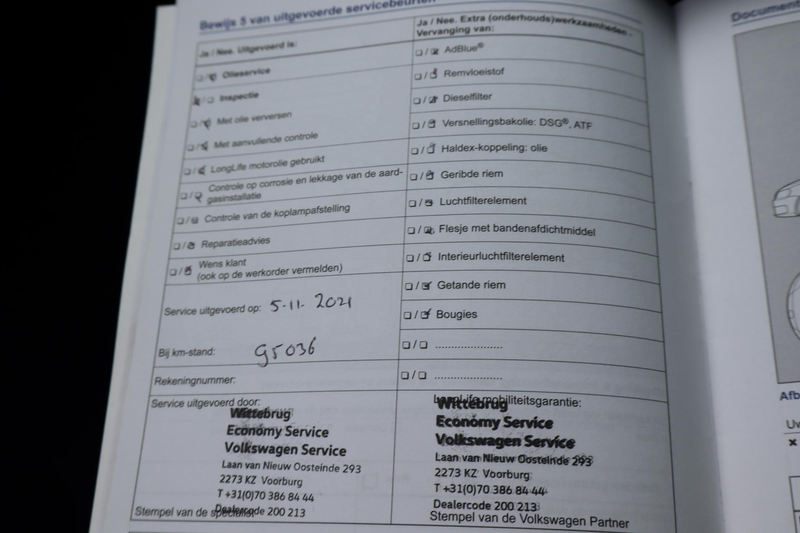 Bewijs 5 van uitgevoerde servicebeurten
Ja / Nee. Uitgevoerd is:
Olieservice
Inspectie
Met olie verversen
Met aanvullende controle
LongLife motorolie gebruikt
Controle op corrosie en lekkage van de aard-
gasinstallatie
Controle van de koplampafstelling
Reparatieadvies
Wens klant
(ook op de werkorder vermelden)
Service uitgevoerd op: 5-11-2021
Bij km-stand: 95036
Rekeningnummer:
Service uitgevoerd door:
Wittebrug
Economy Service
Volkswagen Service
Laan van Nieuw Oosteinde 293
2273 KZ Voorburg
T +31(0)70 386 84 44
Dealercode 200 213
Stempel van de specialist
Ja / Nee. Extra (onderhouds)werkzaamheden -
Vervanging van:
AdBlue®
Remvloeistof
Dieselfilter
Versnellingsbakolie: DSG®, ATF
Haldex-koppeling: olie
Geribde riem
Luchtfilterelement
Flesje met bandenafdichtmiddel
Interieurluchtfilterelement
Getande riem
Bougies
....................
....................
LongLife mobiliteitsgarantie:
Wittebrug
Economy Service
Volkswagen Service
Laan van Nieuw Oosteinde 293
2273 KZ Voorburg
T +31(0)70 386 84 44
Dealercode 200 213
Stempel van de Volkswagen Partner
Document
Afb
Uw